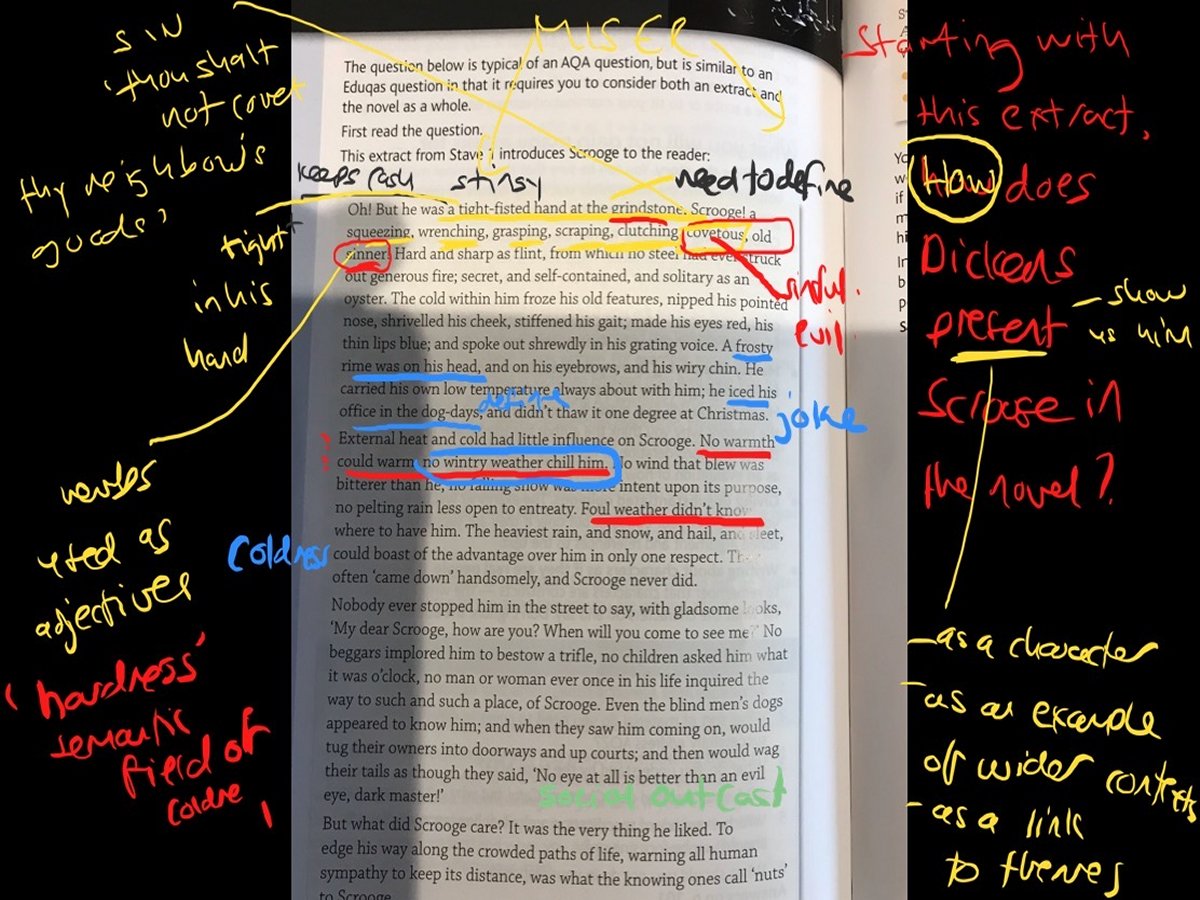 MISER
SIN
'thou shalt
not covet
thy neighbour's
goods'
The question below is typical of an AQA question, but is similar to an
Eduqas question in that it requires you to consider both an extract and
the novel as a whole.
First read the question.
This extract from Stave 1 introduces Scrooge to the reader:
keeps cash
stingy
need to define
Oh! But he was a tight-fisted hand at the grindstone. Scrooge! a
squeezing, wrenching, grasping, scraping, clutching, covetous, old
sinner! Hard and sharp as flint, from which no steel had ever struck
out generous fire; secret, and self-contained, and solitary as an
oyster. The cold within him froze his old features, nipped his pointed
nose, shrivelled his cheek, stiffened his gait; made his eyes red, his
thin lips blue; and spoke out shrewdly in his grating voice. A frosty
rime was on his head, and on his eyebrows, and his wiry chin. He
carried his own low temperature always about with him; he iced his
office in the dog-days; and didn't thaw it one degree at Christmas.
External heat and cold had little influence on Scrooge. No warmth
could warm, no wintry weather chill him. No wind that blew was
bitterer than he, no falling snow was more intent upon its purpose,
no pelting rain less open to entreaty. Foul weather didn't know
where to have him. The heaviest rain, and snow, and hail, and sleet,
could boast of the advantage over him in only one respect. They
often 'came down' handsomely, and Scrooge never did.
Nobody ever stopped him in the street to say, with gladsome looks,
'My dear Scrooge, how are you? When will you come to see me?' No
beggars implored him to bestow a trifle, no children asked him what
it was o'clock, no man or woman ever once in his life inquired the
way to such and such a place, of Scrooge. Even the blind men's dogs
appeared to know him; and when they saw him coming on, would
tug their owners into doorways and up courts; and then would wag
their tails as though they said, 'No eye at all is better than an evil
eye, dark master!'
But what did Scrooge care? It was the very thing he liked. To
edge his way along the crowded paths of life, warning all human
sympathy to keep its distance, was what the knowing ones call 'nuts'
to Scrooge.
tight
in his
hand
sinful.
evil.
define
joke
Coldness
social outcast
used as
adjectives
'hardness'
semantic
field of
Starting with
this extract,
How does
Dickens
present
Scrooge in
the novel?
- show
us him
- as a character
- as an example
of wider contexts
- as a link
to themes